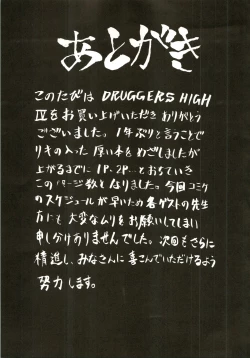 あとがき
このたびは DRUGGERS HIGH
Ⅳをお買い上げいただきありがとう
ございました。1年ぶりと言うことで
リキの入った厚い本をめざしましたが
上がるまでに1P・2P…とおちていき
このページ数となりました。今回コミケ
のスケジュールが早いため各ゲストの先生
方にも大変なムリをお願いしてしまい
申し分けありませんでした。次回もさらに
精進し、みなさんに喜こんでいただけるよう
努力します。